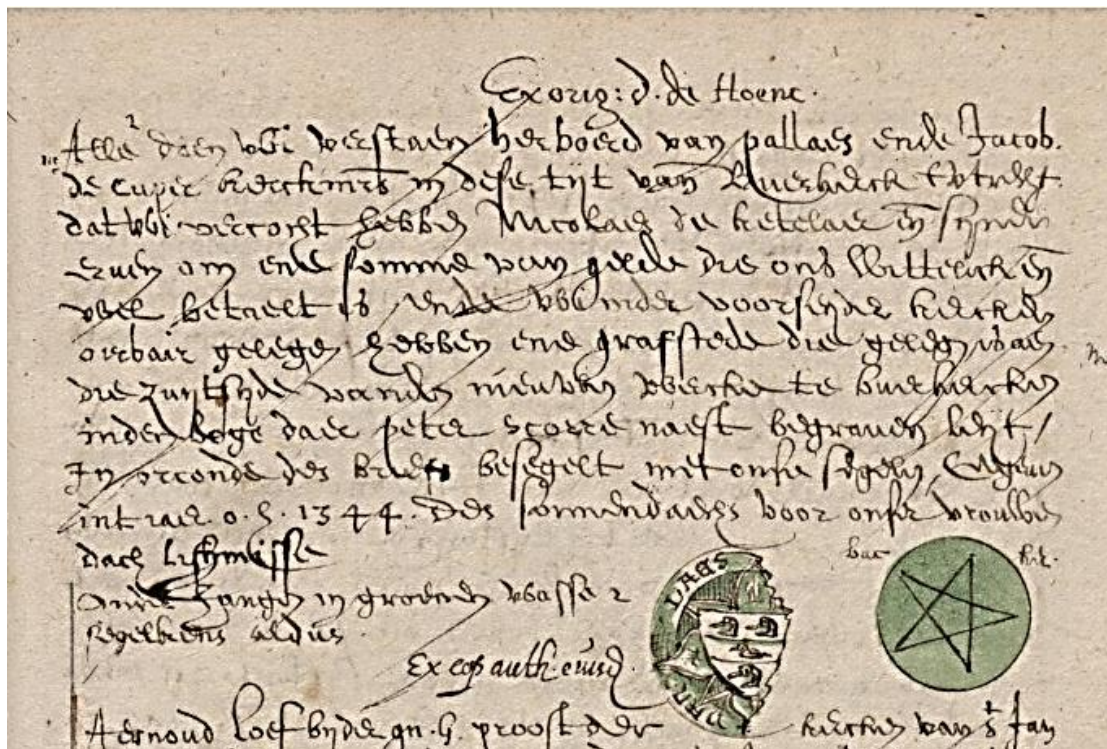 Ex orig: d. de Hoenc.
Alle doen wi verstaen herboerd van pallaes ende Jacob.
de Cuper kerckmrs in dese tijt van Buerkerck tVtrecht
dat wi vercocht hebben Nicolaes de ketelaer eñ synen
erven om ene somme van gelde die ons wittelick eñ
wel betaelt is ende wi inder voorseyder kercken
oirbair gelegen hebben ene grafstede die gelegen is aen
die zuijtsyde vanden nieuwen wercke te buerkercken
inden boge daer peter Scorre naest begraven leijt /
In orconde des briefs besegelt met onsen segelen, Gegeven
int iaer o. h. 1344. des sonnendaechs voor onser vrouwen
dach lichtmisse
Ondr hangen in groenen wasse 2
segelkens aldus.
PALAES
bue ker.
Ex cop auth. eiusd.
Aernoud Loef byder gn. g. proost der kercken van St Jan